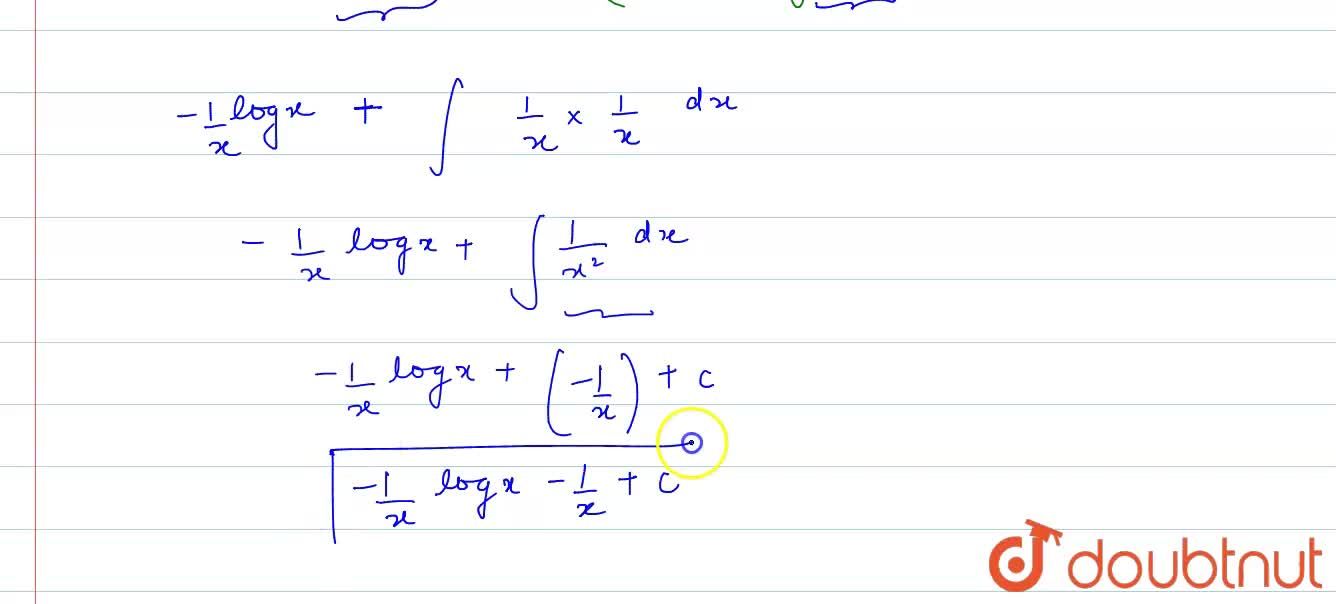 -1/x log x + ∫ 1/x × 1/x dx
- 1/x log x + ∫ 1/x² dx
-1/x log x + (-1/x) + c
-1/x log x - 1/x + c
doubtnut